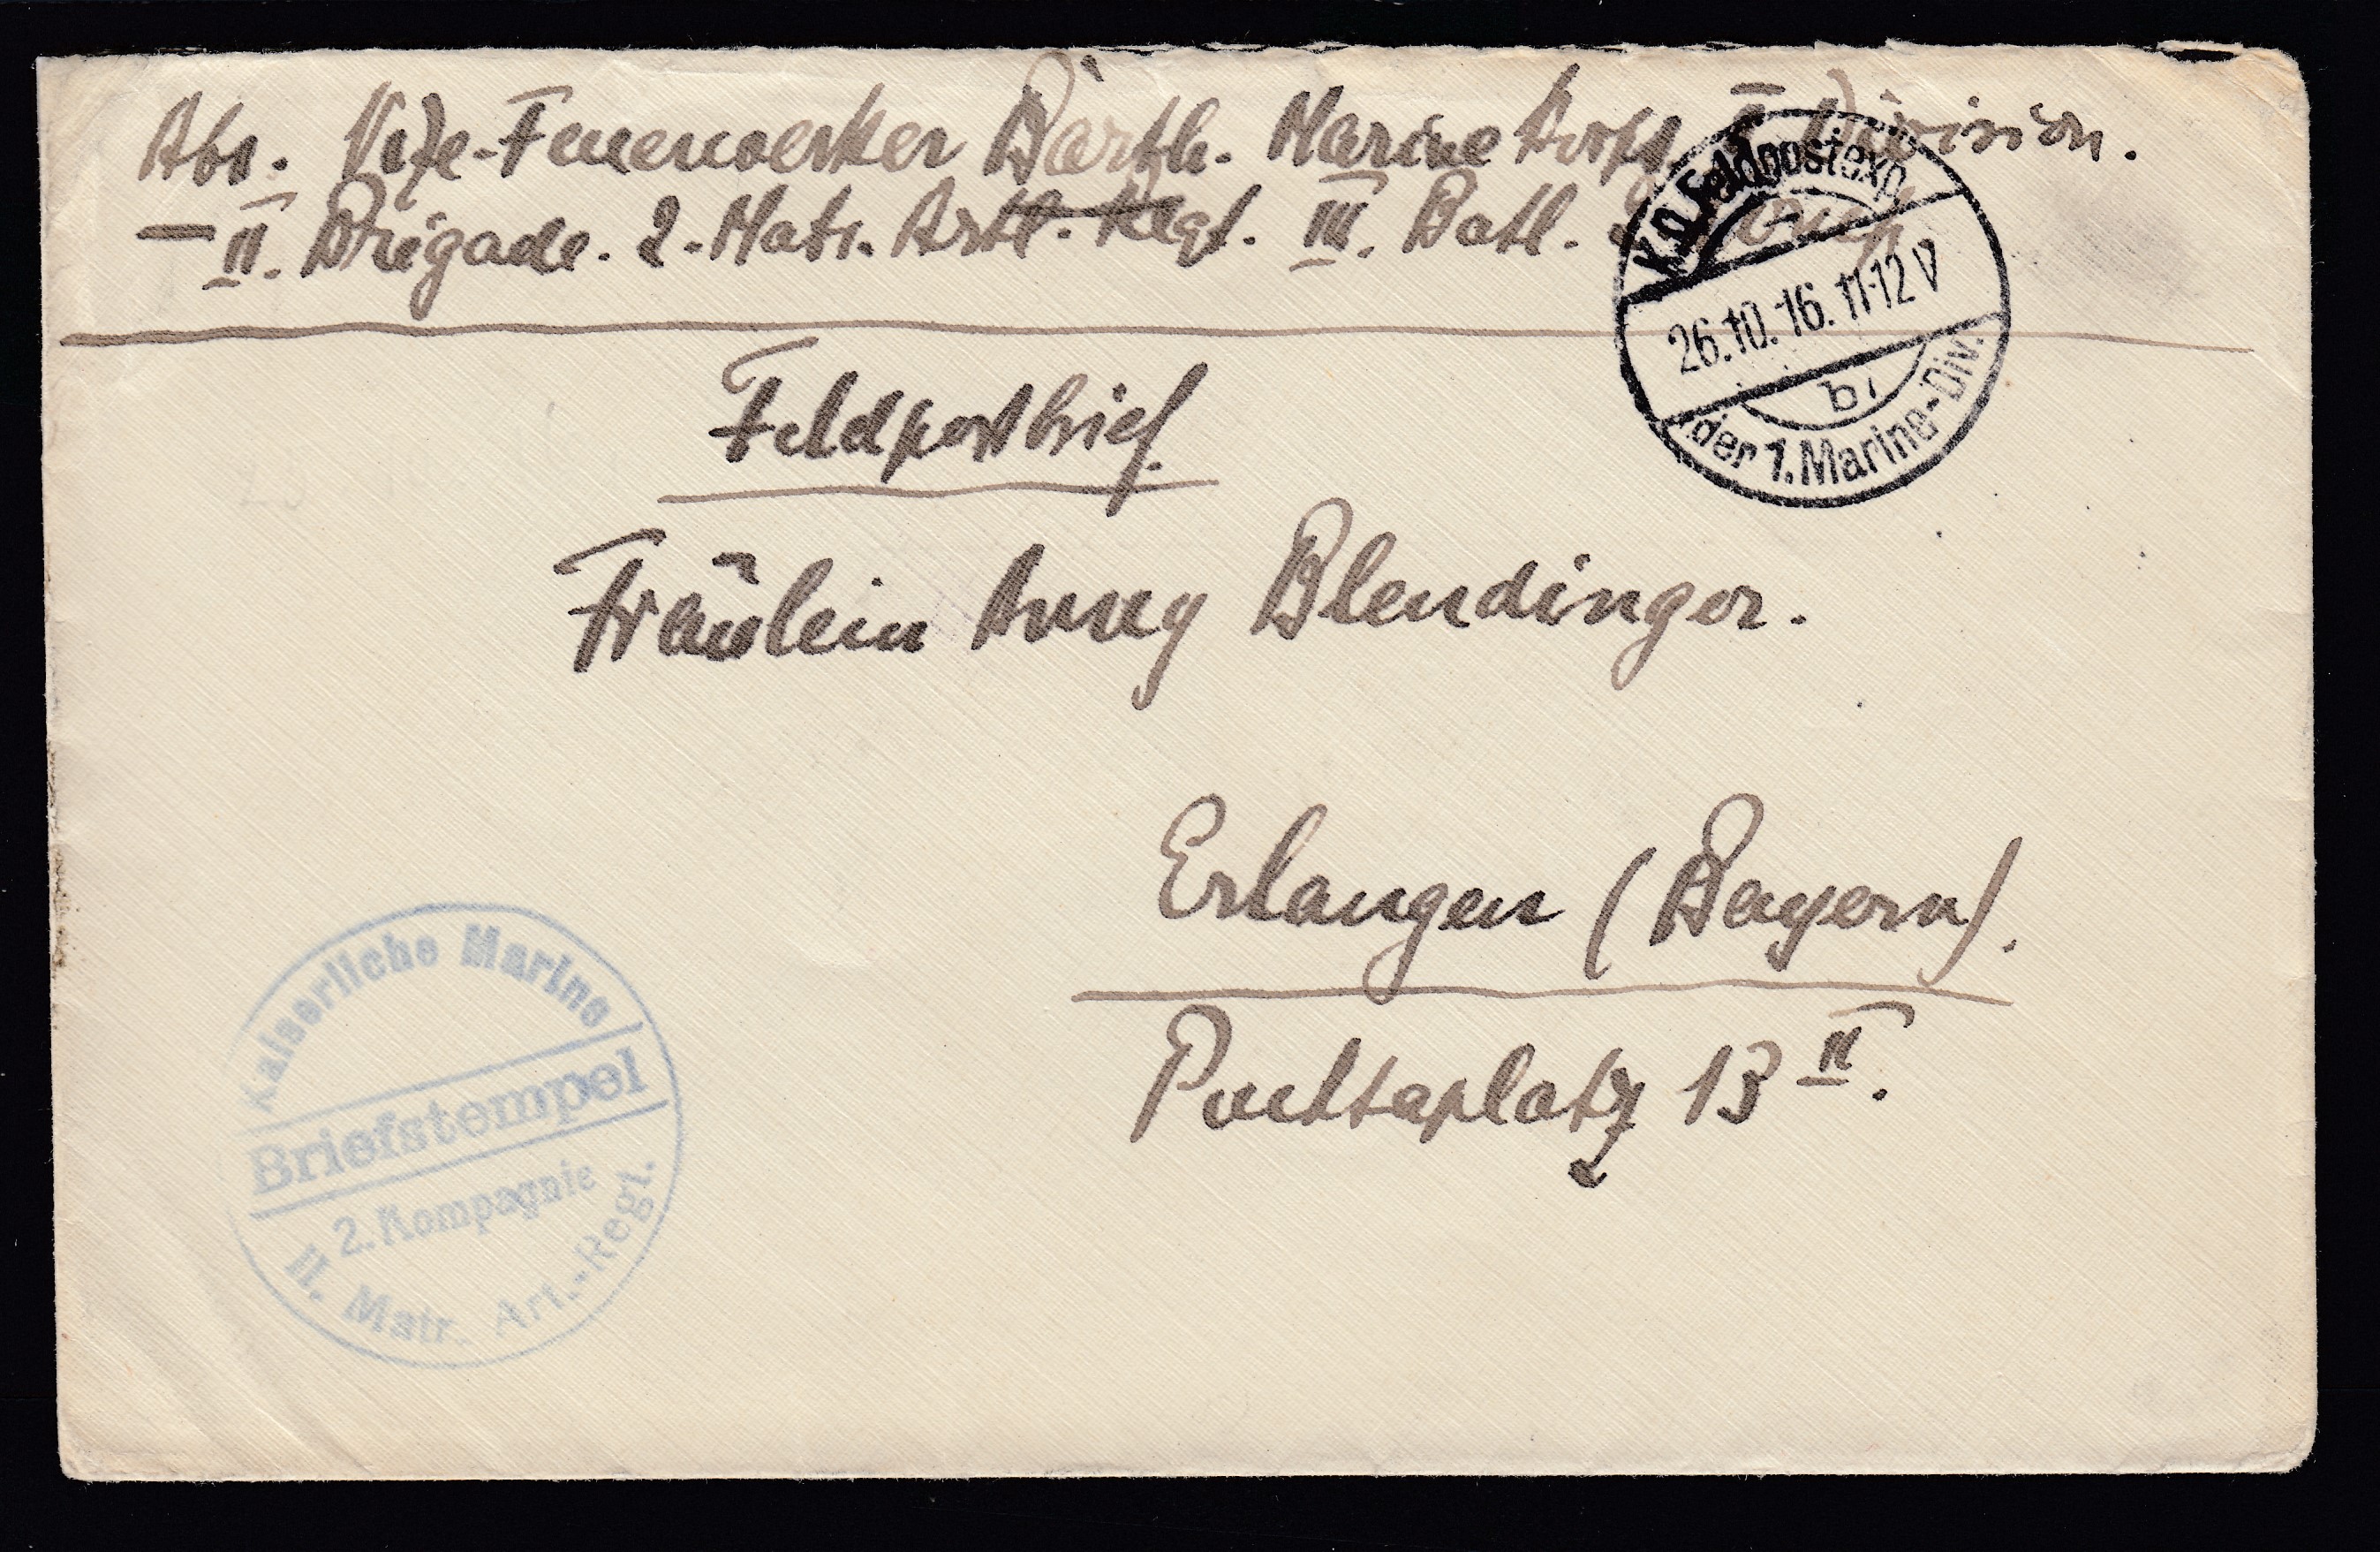 Abs. Vize-Feuerwerker Barth. Marine Korps. I Division.
— II. Brigade. 2. Matr. Artl. Regt. III. Batl.
K.D. Feldpostexp.
26.10.16. 11-12 V
b
der 1. Marine-Div.
Feldpostbrief.
Fräulein Anny Blendinger.
Erlangen (Bayern).
Puchtaplatz 13 II.
Kaiserliche Marine
Briefstempel
2. Kompagnie
II. Matr. Art.-Regt.